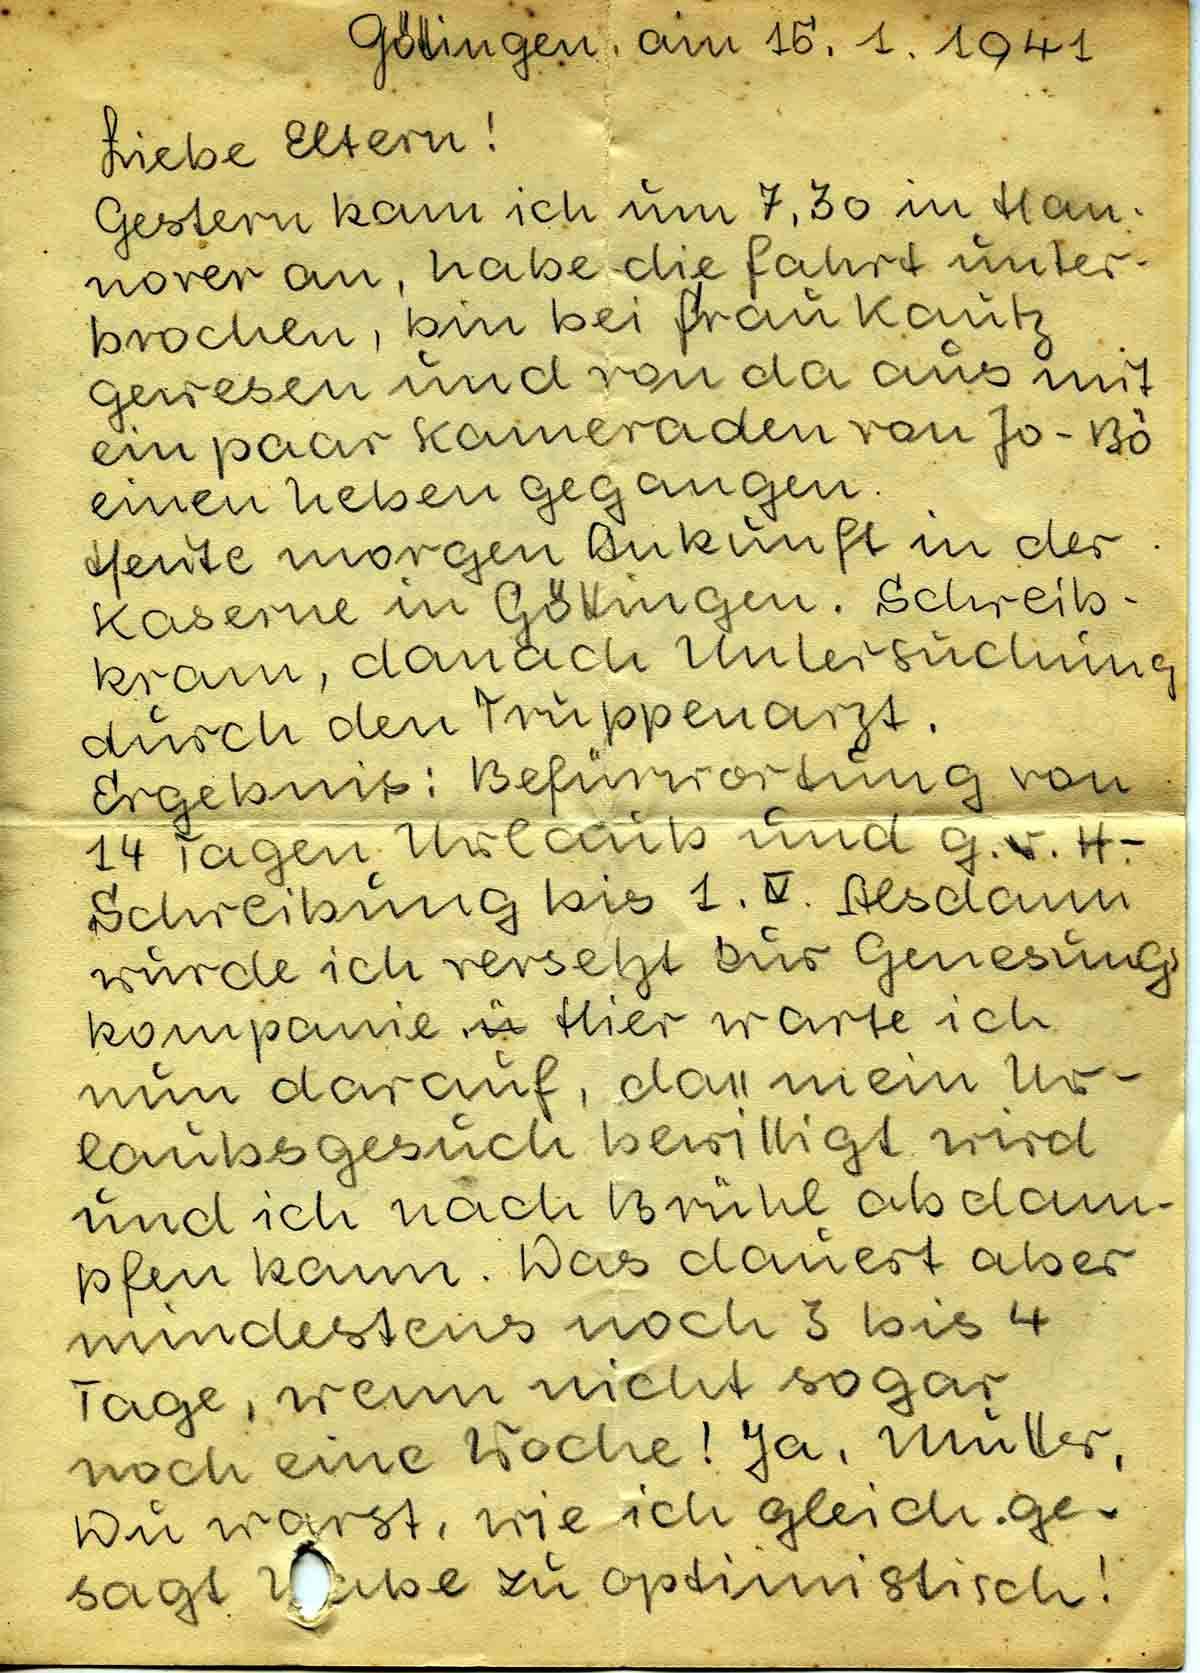 Göttingen, am 15. 1. 1941
Liebe Eltern!
Gestern kam ich um 7,30 in Han-
nover an, habe die Fahrt unter-
brochen, bin bei Frau Kautz
gewesen und von da aus mit
ein paar Kameraden von Jo-Bö
einen heben gegangen.
Heute morgen Ankunft in der
Kaserne in Göttingen. Schreib-
kram, danach Untersuchung
durch den Truppenarzt.
Ergebnis: Befürwortung von
14 Tagen Urlaub und g.v.H.-
Schreibung bis 1. V. Alsdann
wurde ich versetzt zur Genesungs
kompanie. Hier warte ich
nun darauf, daß mein Ur-
laubsgesuch bewilligt wird
und ich nach Brühl abdam-
pfen kann. Das dauert aber
mindestens noch 3 bis 4
Tage, wenn nicht sogar
noch eine Woche! Ja, Mutter,
Du warst, wie ich gleich ge-
sagt habe zu optimistisch!